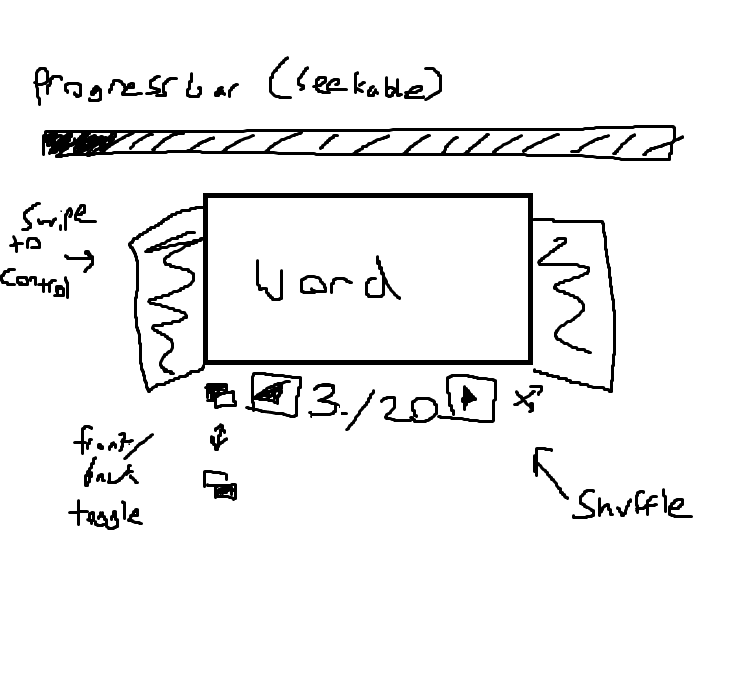 Progress bar (seekable)
Swipe
to
control
Word
3./20
front/
back
toggle
Shuffle